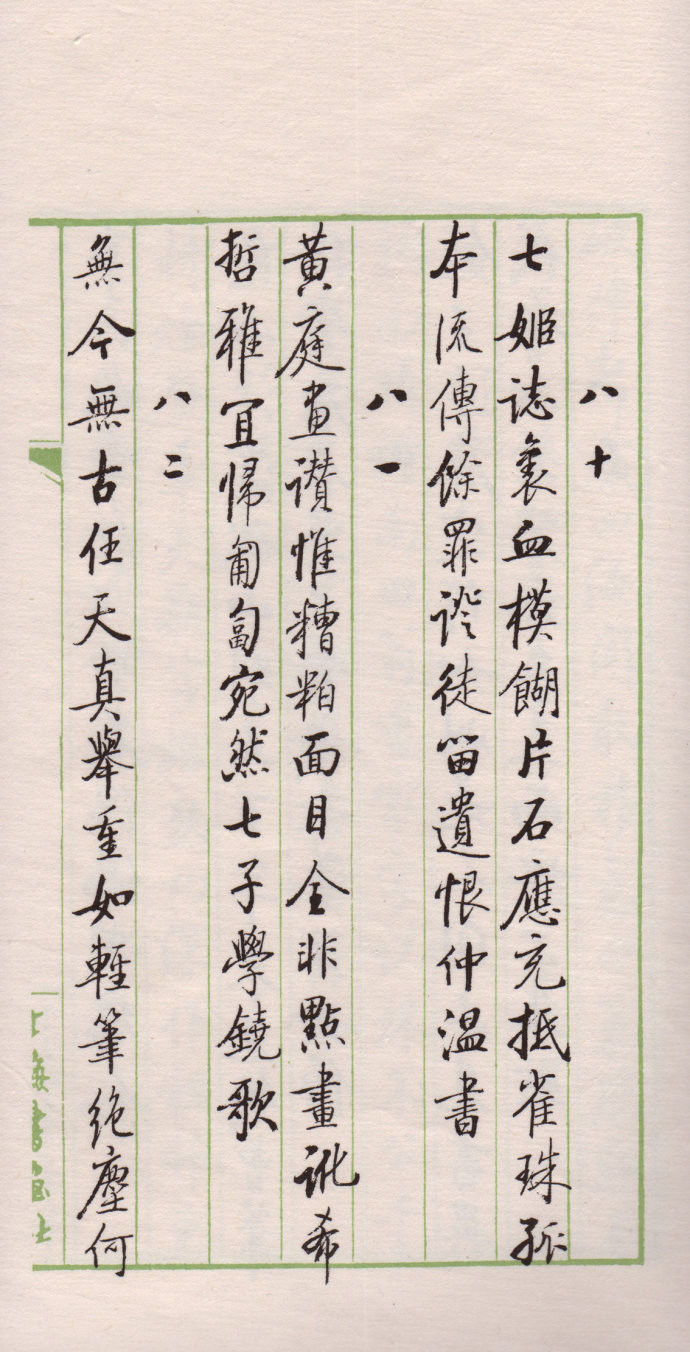 八十
七姬誌裏血模餬片石應充抵雀珠孤
本流傳餘罪證徒留遺恨仲溫書
八一
黃庭畫讚惟糟粕面目全非點畫訛希
哲雅宜歸匍匐宛然七子學鐃歌
八二
無今無古任天真舉重如輕筆絕塵何
上海書畫社